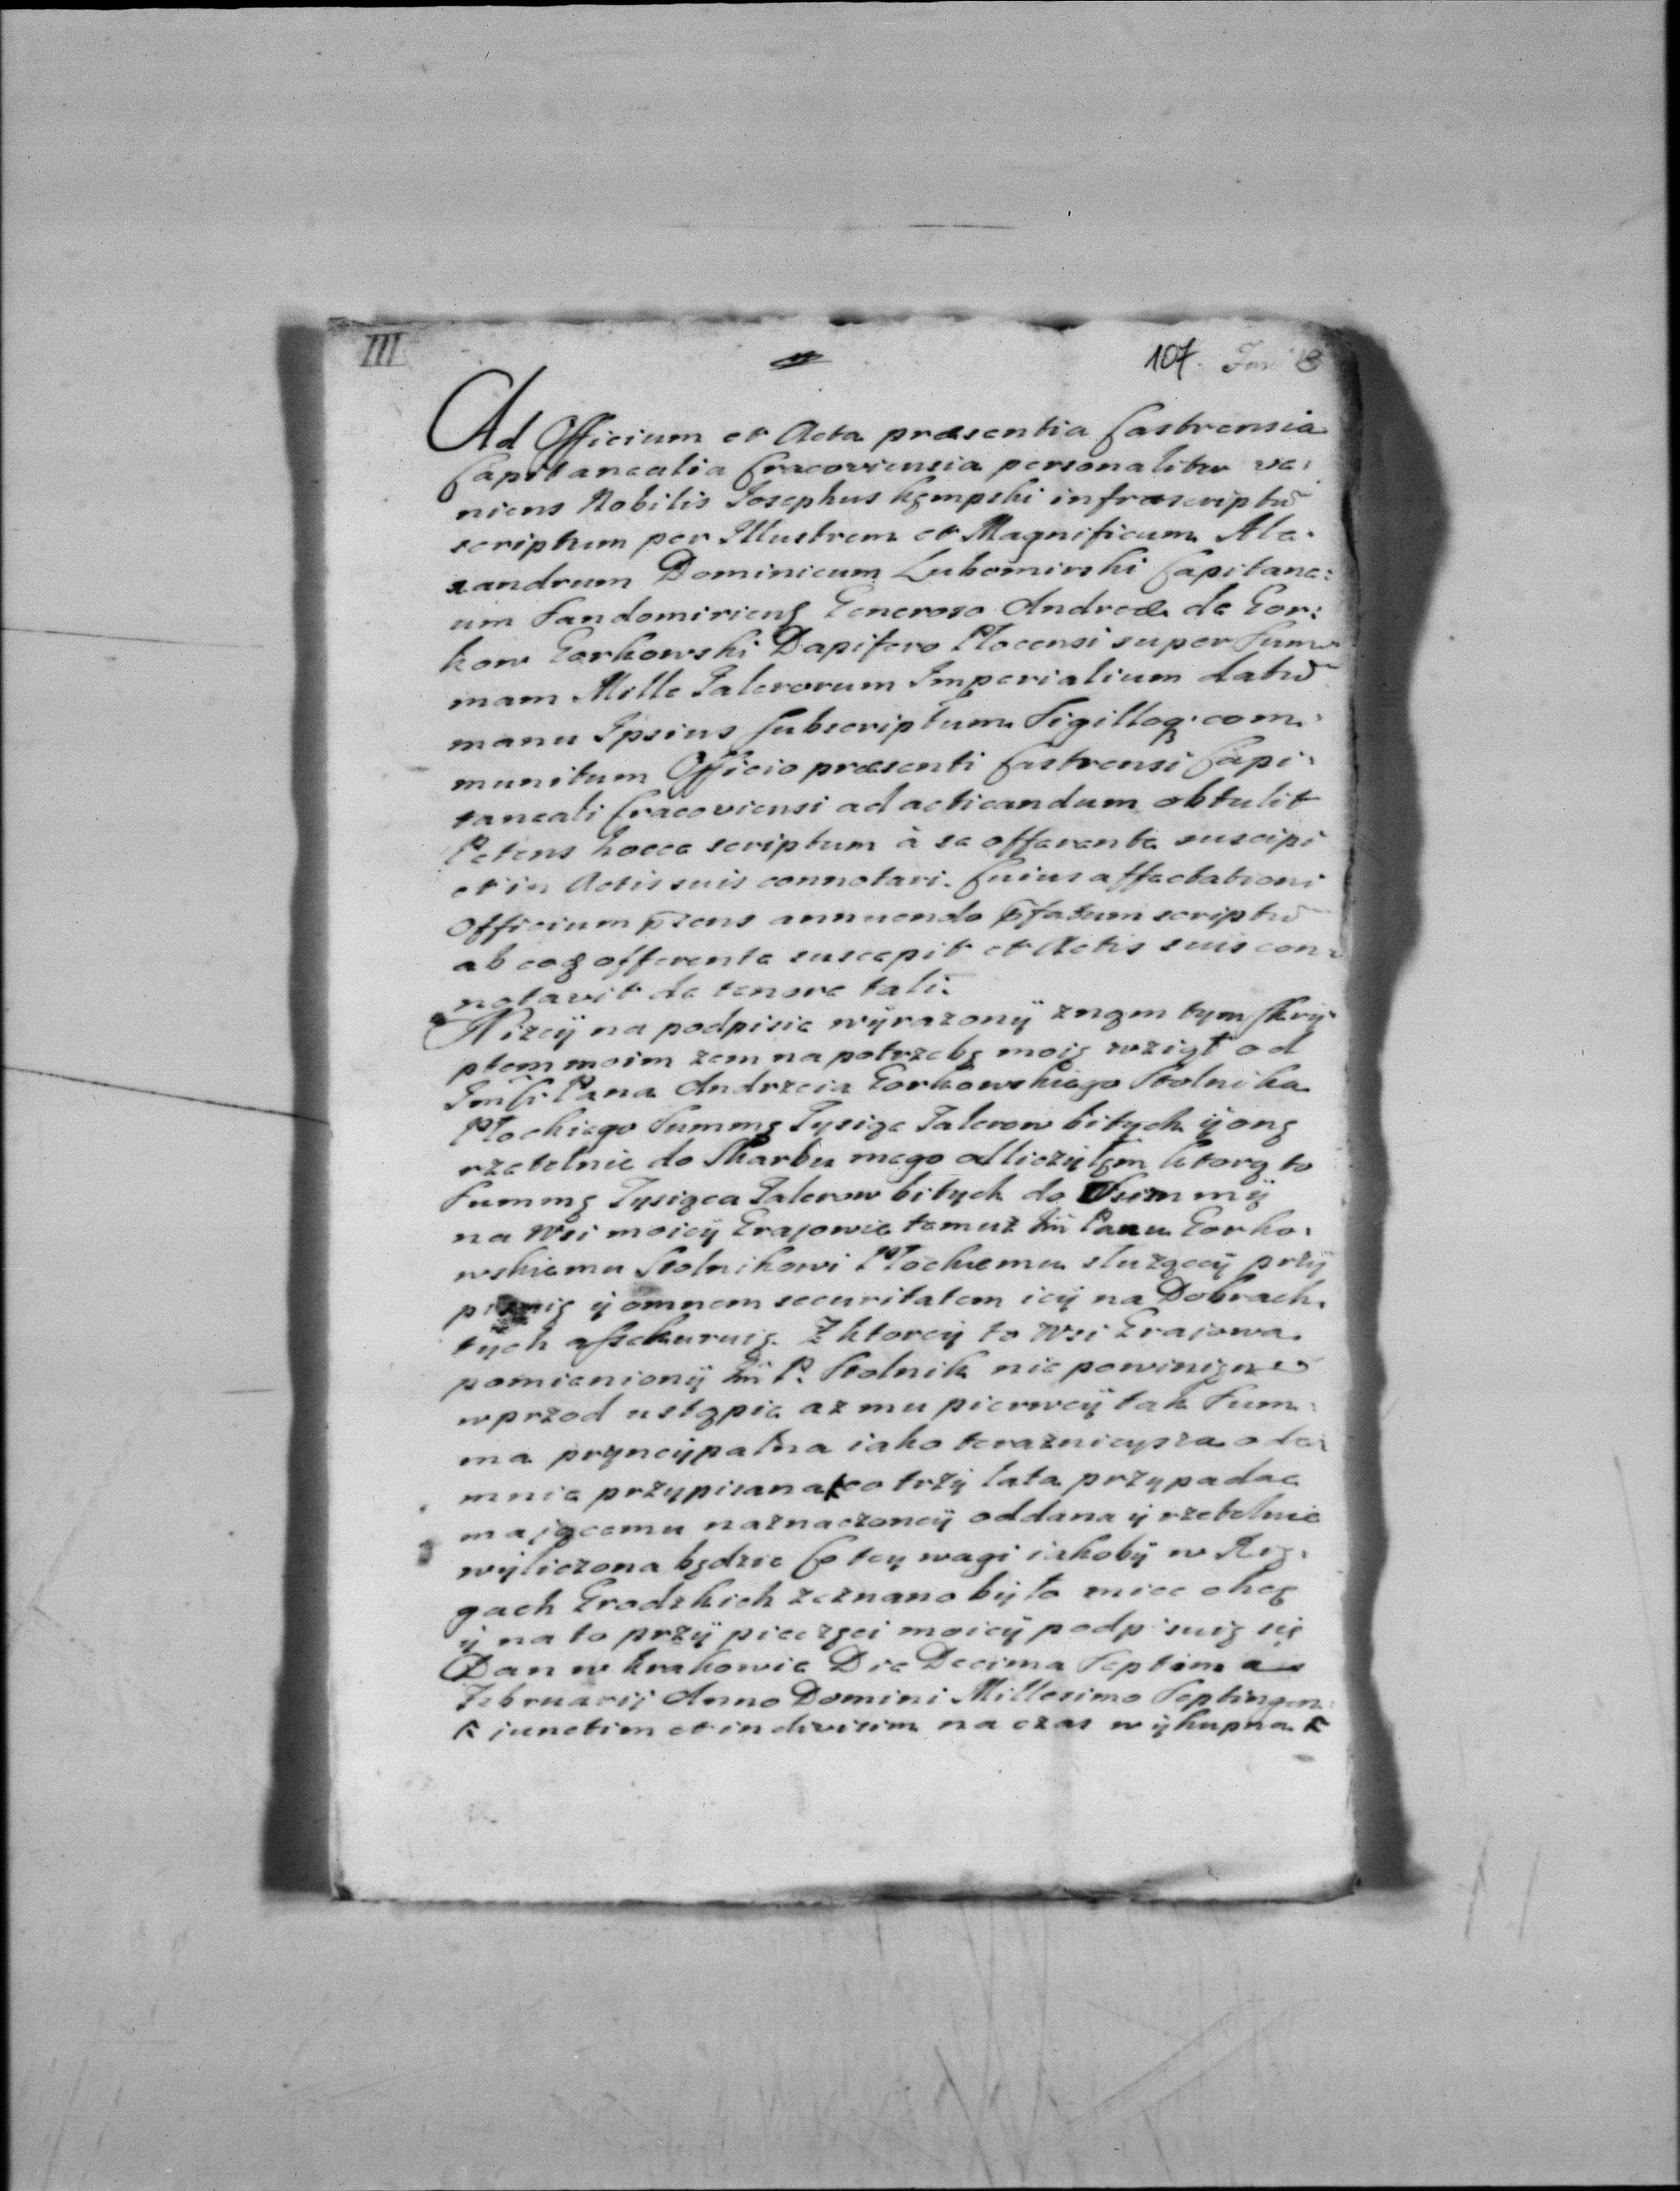 III
107.
Ad Officium et Acta præsentia Castrensia
Capitanealia Cracoviensia personaliter ve:
niens Nobilis Josephus Kęmpski infrascriptũ
scriptum per Illustrem et Magnificum Ale:
xandrum Dominicum Lubomirski Capitane:
um Sandomirieñs Generoso Andreæ de Gor:
kow Gorkowski Dapifero Plocensi super Sum:
mam Mille Talerorum Imperialium datũ
manu Ipsius Subscriptum Sigilloq. com:
munitum Officio præsenti Castrensi Capi:
taneali Cracoviensi ad acticandum obtulit
Petens hocce scriptum à se offerente suscipi
et in Actis suis connotari. Cuius affectationi
Officium p̃sens annuendo p̃fatum scriptũ
ab eoq offerente suscepit et Actis suis con:
notavit de tenore tali.
Niżeÿ na podpisie wÿrażonÿ znąm tym skrÿ
ptem moim żem na potrzebę moię wziął od
Jm̃ści Pana Andrzeia Gorkowskiego Stolnika
Płockiego Summę Tysiąc Talerow bitych ÿ onę
rzetelnie do Skarbu mego odliczÿłęm ktorą to
Summę Tysiąca Talerow bitych do Summÿ
na Wsi moieÿ Grajowie temuż Jm̃ Panu Gorko:
wskiemu Stolnikowi Płockiemu służąceÿ przÿ
pisuię ÿ omnem securitatem ieÿ na Dobrach
tych assekuruię. Z ktoreÿ to Wsi Grajowa
pomienionÿ Jm̃ P. Stolnik nie powinięn
wprzod ustąpic aż mu pierweÿ tak Sum:
ma pryncÿpalna iako teraznieysza ode:
mnie przypisana co trzÿ lata przypadac
maiącemu naznaczoneÿ oddana ÿ rzetelnie
wÿliczona będzie Co tey wagi iakobÿ w Xię:
gach Grodzkich zeznano bÿło miec chcę
ÿ na to przÿ pieczęci moieÿ podpisuię się
Dan w Krakowie Die Decima Septima
Februarij Anno Domini Millesimo Septingen:
junctim et indivisim na czas wÿkupna